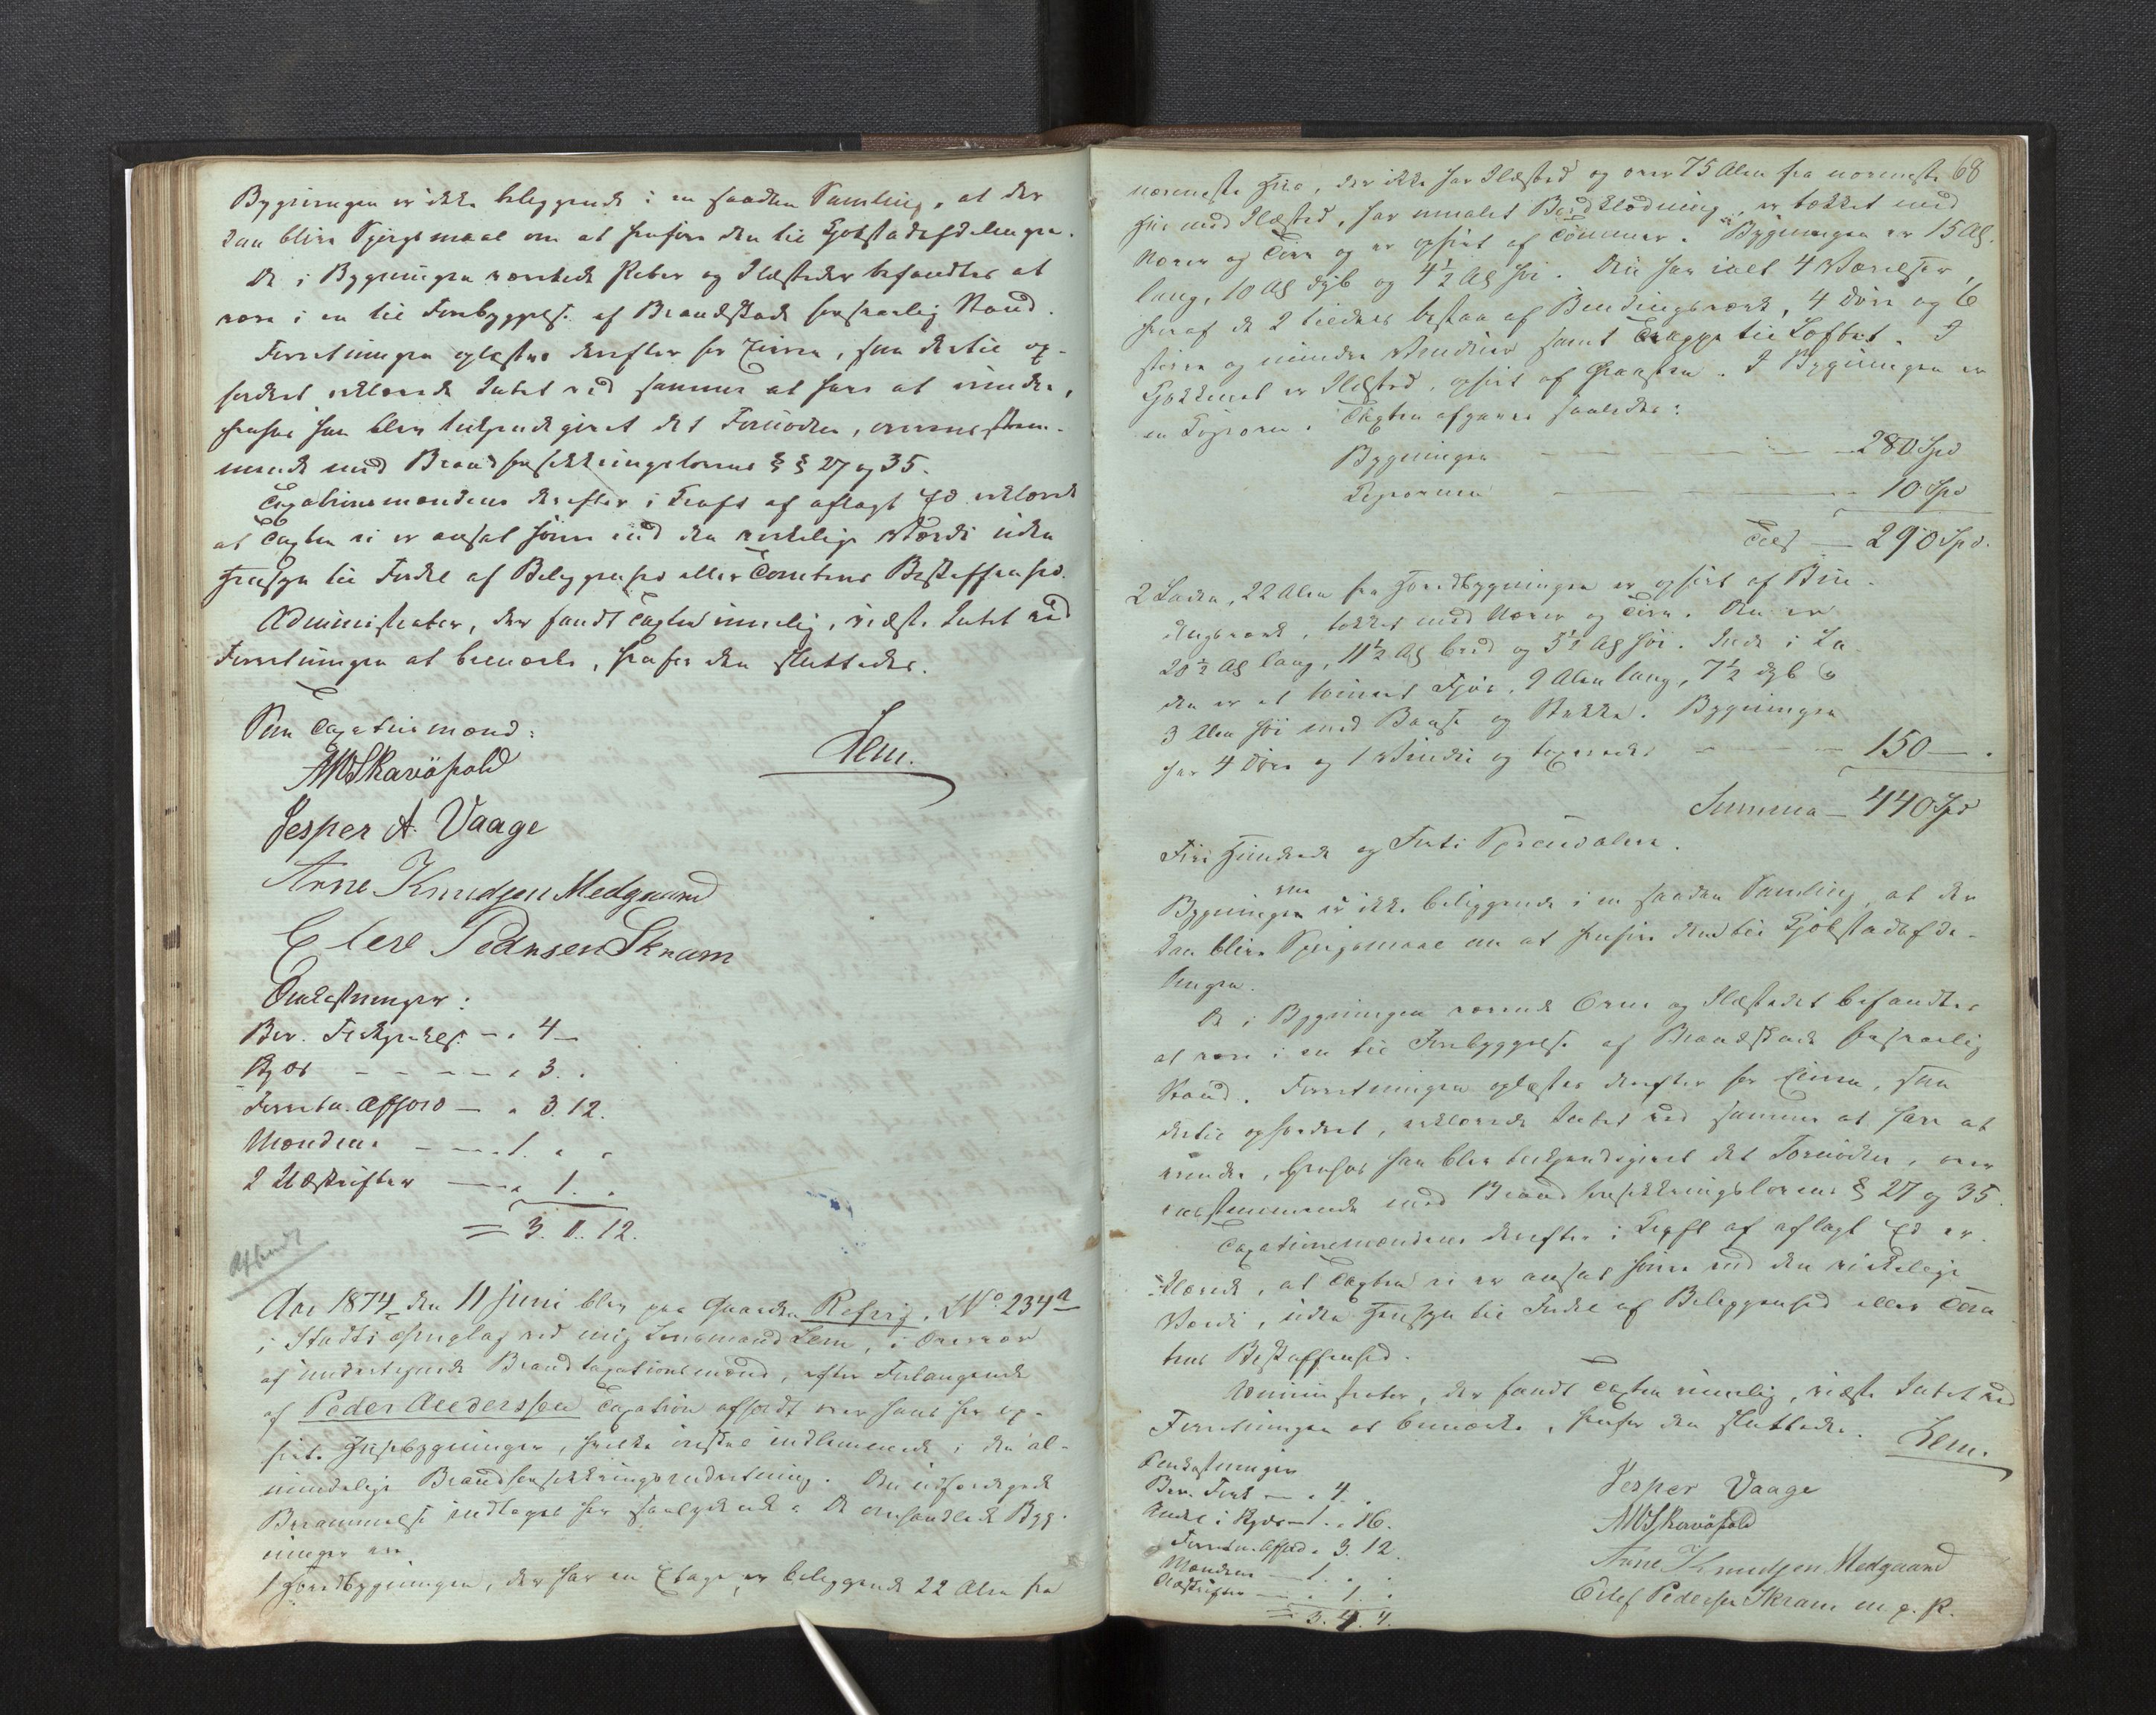 Bygningen er ikke beliggende i en saadan Samling, at der
kan blive Spørgsmaal om at henføre den til Kjøbstadafdelingen.
De i Bygningen værende Piber og Ildsteder befandtes at
være i en til Forebyggelse af Brandskade forsvarlig Stand.
Forretningen oplæstes derefter for Eieren, som dertil op-
fordret erklærede Intet ved samme at have at erindre,
hvorhos han blev tilkjendegivet det Fornødne, overensstem-
mende med Brandforsikkringslovens § § 27 og 35.
Taxationsmændene derefter i Kraft af aflagt Ed erklærede
at Taxten ei er ansat høiere end den virkelige Værdi uden
Hensyn til Fordel af Beliggenhed eller Tomtens Beskaffenhed.
Administrator, der fandt Taxten rimelig, vidste Intet ved
Forretningen at bemærke, hvorfor den sluttedes.
Som Taxationsmænd:
Lem.
Skaröpold
Jesper A. Vaage
Arne Knudsen Medgaard
Pedersen Skram
Omkostninger:
Ber. Fortegnelse - " 4 -
Skyds - - - - " 3. "
Forretn. Afhold - " 3. 12.
Mændene - - - 1. " "
2 Udskrifter - " 1. "
= 3. 1. 12.
Afsendt
Aar 1874 den 11 Juni blev paa Gaarden Refvig, No 234a
i Stadts Thinglag ved mig Lensmand Lem, i Overvær
af undertegnede Brandtaxationsmænd, efter Forlangende
af Peder Anderssen Taxation afholdt over hans her op-
førte Husebygninger, hvilke ønskes indlemmede i den al-
mindelige Brandforsikkringsindretning. Den udfærdigede
Berammelse indtages her saalydende: De omhandlede Byg-
ninger ere
1 Hovedbygningen, der har en Etage, er beliggende 22 Alen fra
68
nærmeste Hus, der ikke har Ildsted og over 75 Alen fra nærmeste
Hus med Ildsted, har umalet Bordklædning, er tækket med
Næver og Törv og er opført af Tømmer. Bygningen er 15 Al.
lang, 10 Al dyb og 4½ Al høi. Den har ialt 4 Værelser,
hvoraf de 2 tildels bestaa af Bindingsværk, 4 Døre og 6
større og mindre Vinduer samt Trappe til Loftet. I
Kjøkkenet er Ildsted, opført af Graasten. I Bygningen er
en Kogeovn. Taxten afgaves saaledes:
Bygningen - - - - - 280 Spd
Kogeovnen - - - 10 Spd
Tils - 290 Spd.
2 Laden, 22 Alen fra Hovedbygningen er opført af Bin-
dingsværk, tækket med Næver og Törv. Den er
20½ Al lang, 11½ Al bred og 5½ Al høi. Inde i La-
den er et tömret Fjøs, 9 Alen lang, 7½ dyb og
3 Alen høi med Baase og Bekke. Bygningen
har 4 Døre og 1 Vindu og taxeredes - - - 150 - .
Summa - 440 Spd
Fire Hundrede og Forti Speciedaler.
Bygningerne er ikke beliggende i en saadan Samling, at der
kan blive Spørgsmaal om at henføre dem til Kjøbstadafde-
lingen.
De i Bygningen værende Ovne og Ildstedet befandtes
at være i en til Forebyggelse af Brandskade forsvarlig
Stand. Forretningen oplæstes derefter for Eieren, som
dertil opfordret, erklærede Intet ved samme at have at
erindre, hvorhos han blev tilkjendegivet det Fornødne, over
ensstemmende med Brandforsikkringslovens § 27 og 35
Taxationsmændene derefter i Kraft af aflagt Ed er-
klærede, at Taxten ei er ansat høiere end den virkelige
Værdi, uden Hensyn til Fordel af Beliggenhed eller Tom
tens Beskaffenhed.
Administrator, der fandt Taxten rimelig, vidste Intet ved
Forretningen at bemærke, hvorfor den sluttedes.
Lem.
Omkostninger
Ber. Fort - " 4 "
Andel i Skyds - 1. " 16.
Forretn. Afhold " 3. 12.
Mændene - 1. " "
Udskrifter - " 1. "
= 3. 4. 4.
Jesper Vaage
Skaröpold
Arne Knudsen Medgaard
Pedersen Skram m. p. P.